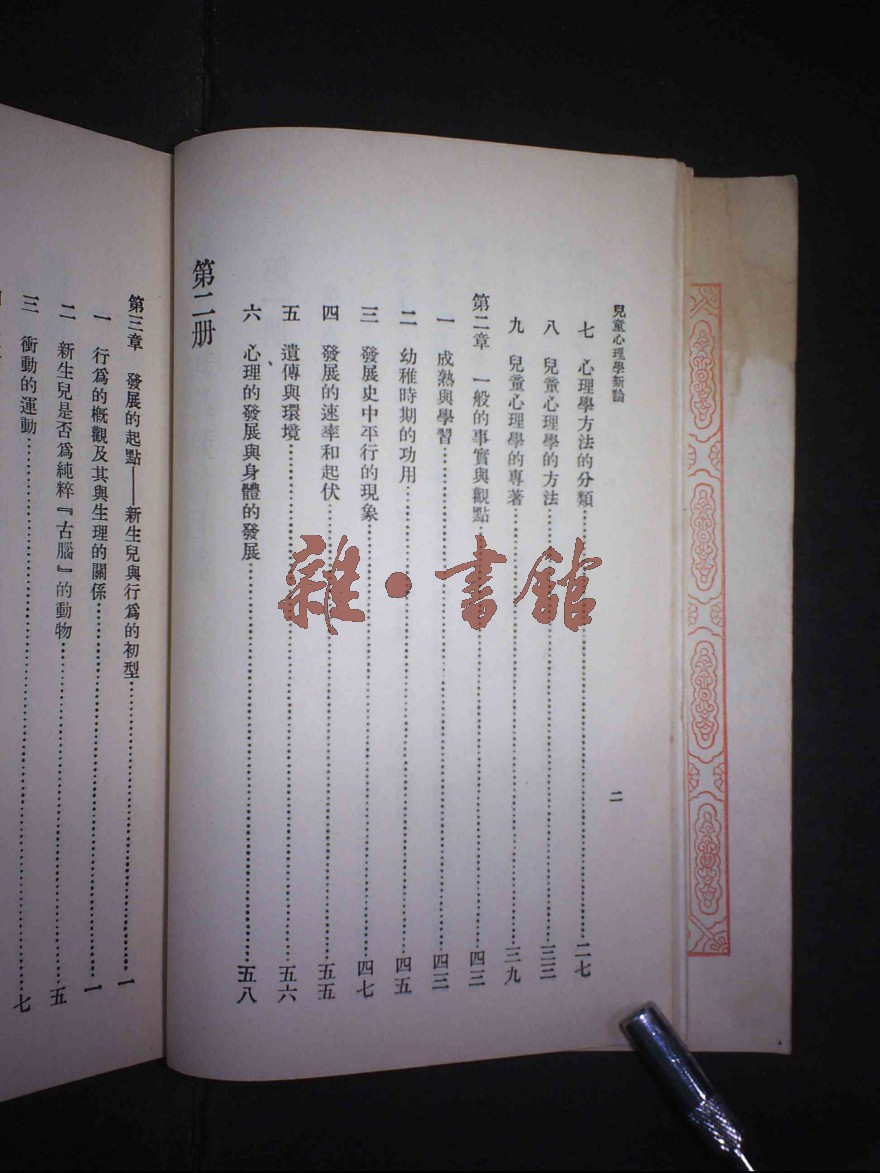 兒童心理學新論
二
七 心理學方法的分類……二七
八 兒童心理學的方法……三三
九 兒童心理學的專著……三九
第二章 一般的事實與觀點……四三
一 成熟與學習……四三
二 幼稚時期的功用……四五
三 發展史中平行的現象……四七
四 發展的速率和起伏……五五
五 遺傳與環境……五六
六 心理的發展與身體的發展……五八
第二册
第三章 發展的起點——新生兒與行爲的初型……一
一 行爲的概觀及其與生理的關係……一
二 新生兒是否爲純粹『古腦』的動物……五
三 衝動的運動……七
雜·書館